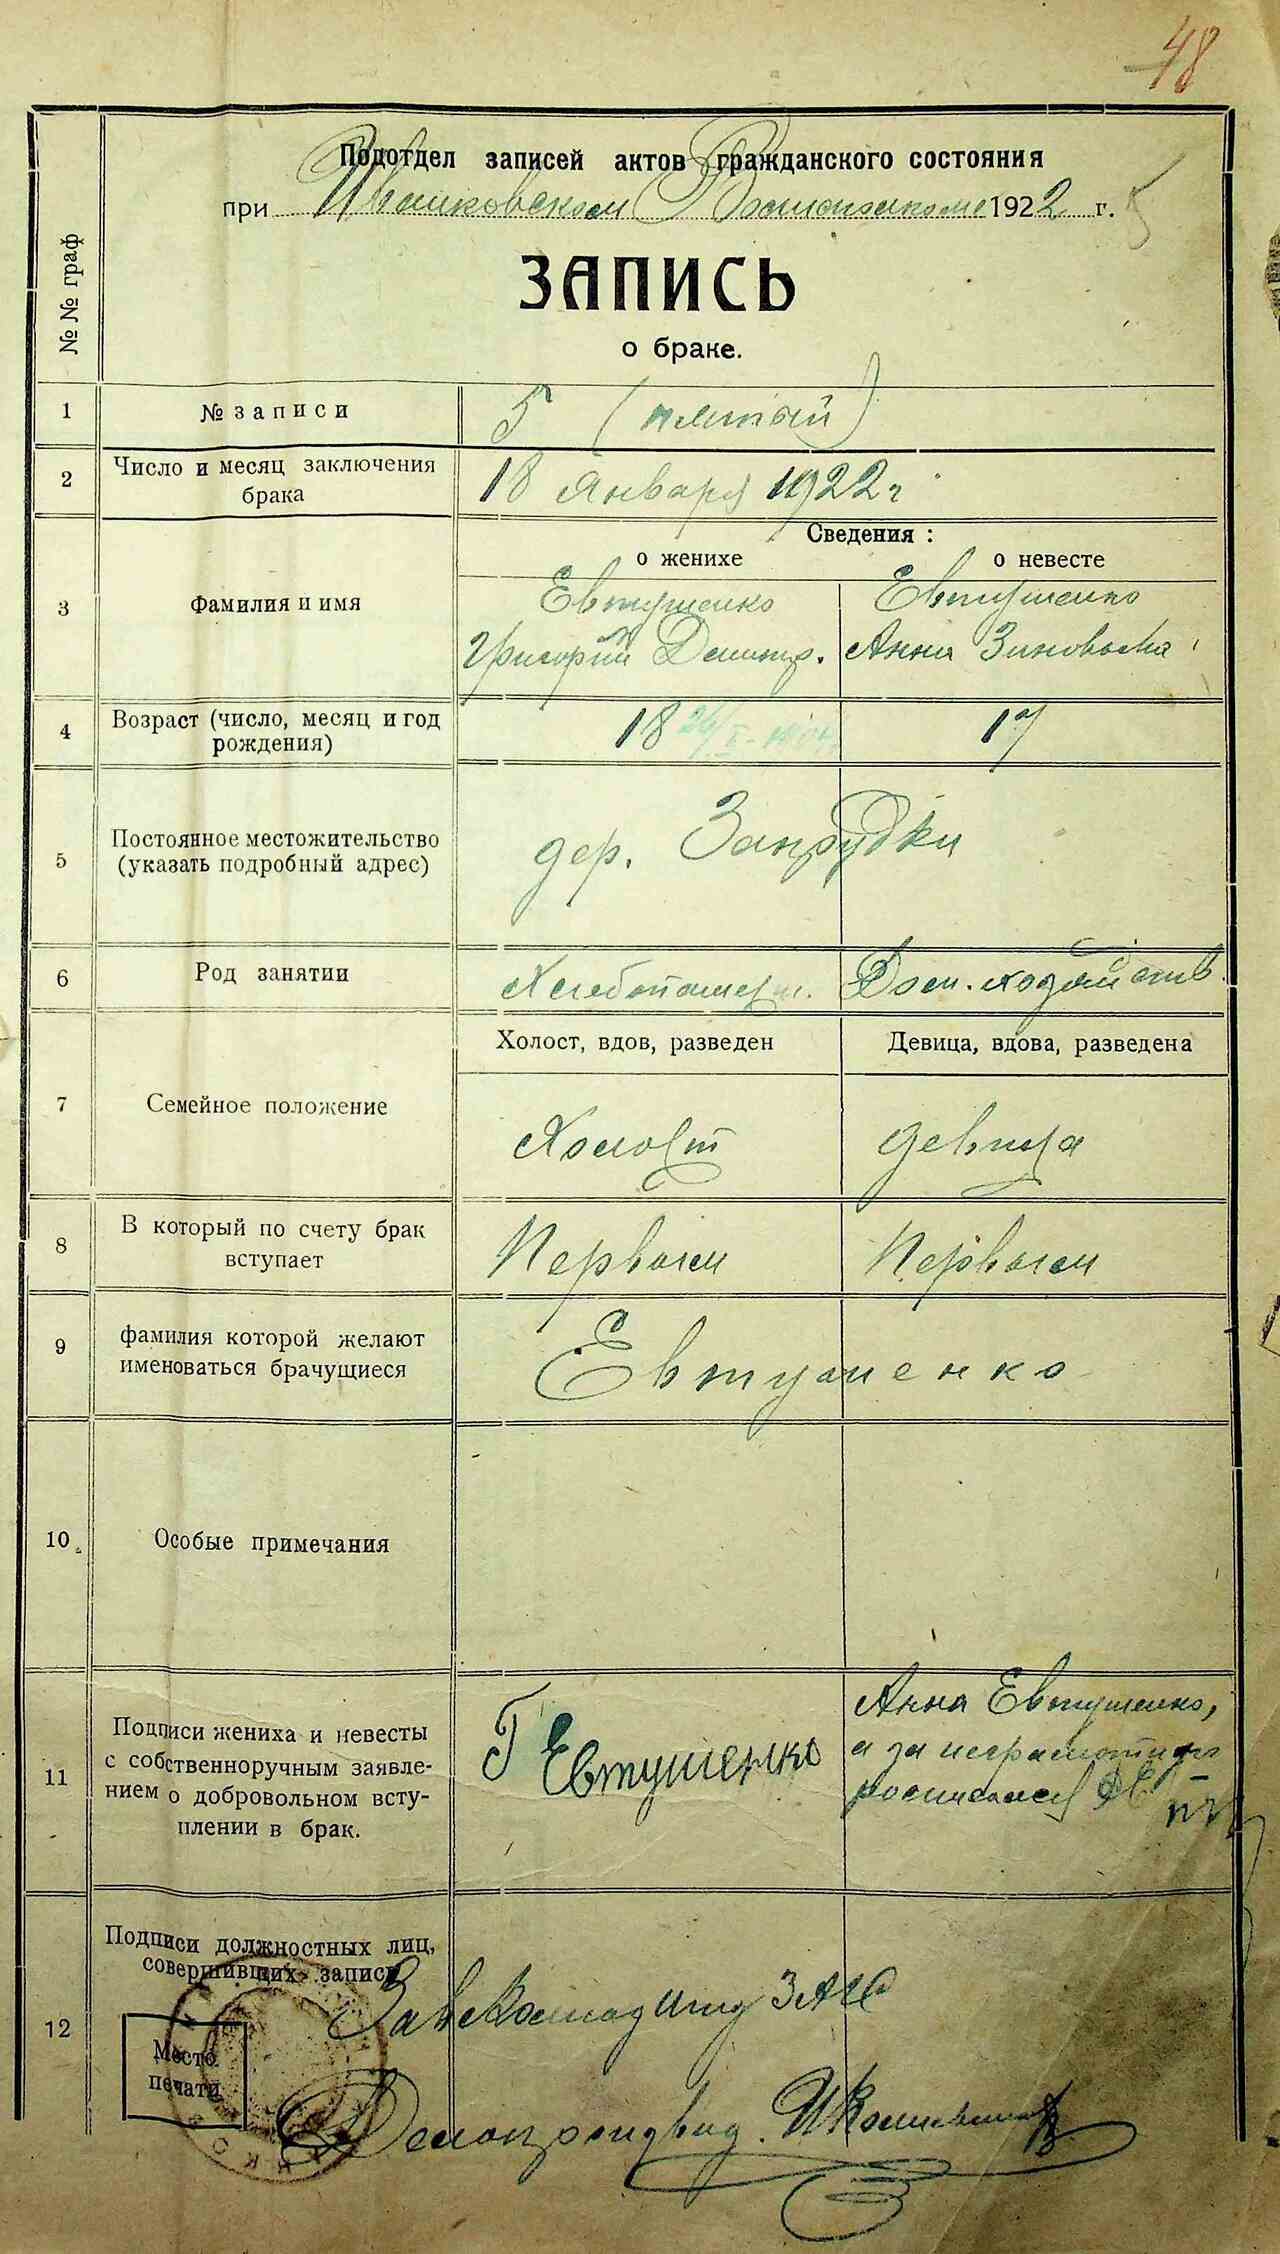 48
Подотдел записей актов гражданского состояния
при Ивашковском Волисполкоме 1922 г. 5
№№ граф
ЗАПИСЬ
о браке.
1 № записи 5 (пятый)
2 Число и месяц заключения
брака
18 Января 1922 г
Сведения:
о женихе о невесте
3 Фамилия и имя
Евтушенко Евтушенко
Григорий Демитр. Анна Зиновьева
4 Возраст (число, месяц и год
рождения)
18 17
5 Постоянное местожительство
(указать подробный адрес)
дер. Запрудки
6 Род занятии Хлебопашец. Дом. хозяйств.
Холост, вдов, разведен Девица, вдова, разведена
7 Семейное положение
Холост девица
8 В который по счету брак
вступает
Первым Первым
9 фамилия которой желают
именоваться брачущиеся
Евтушенко
10 Особые примечания
11 Подписи жениха и невесты
с собственноручным заявле-
нием о добровольном всту-
плении в брак.
Г Евтушенко
Анна Евтушенко,
а за неграмотную
росписался
12 Подписи должностных лиц,
совершивших запись
Место
печати
ЗАГС
Делопроизвод.